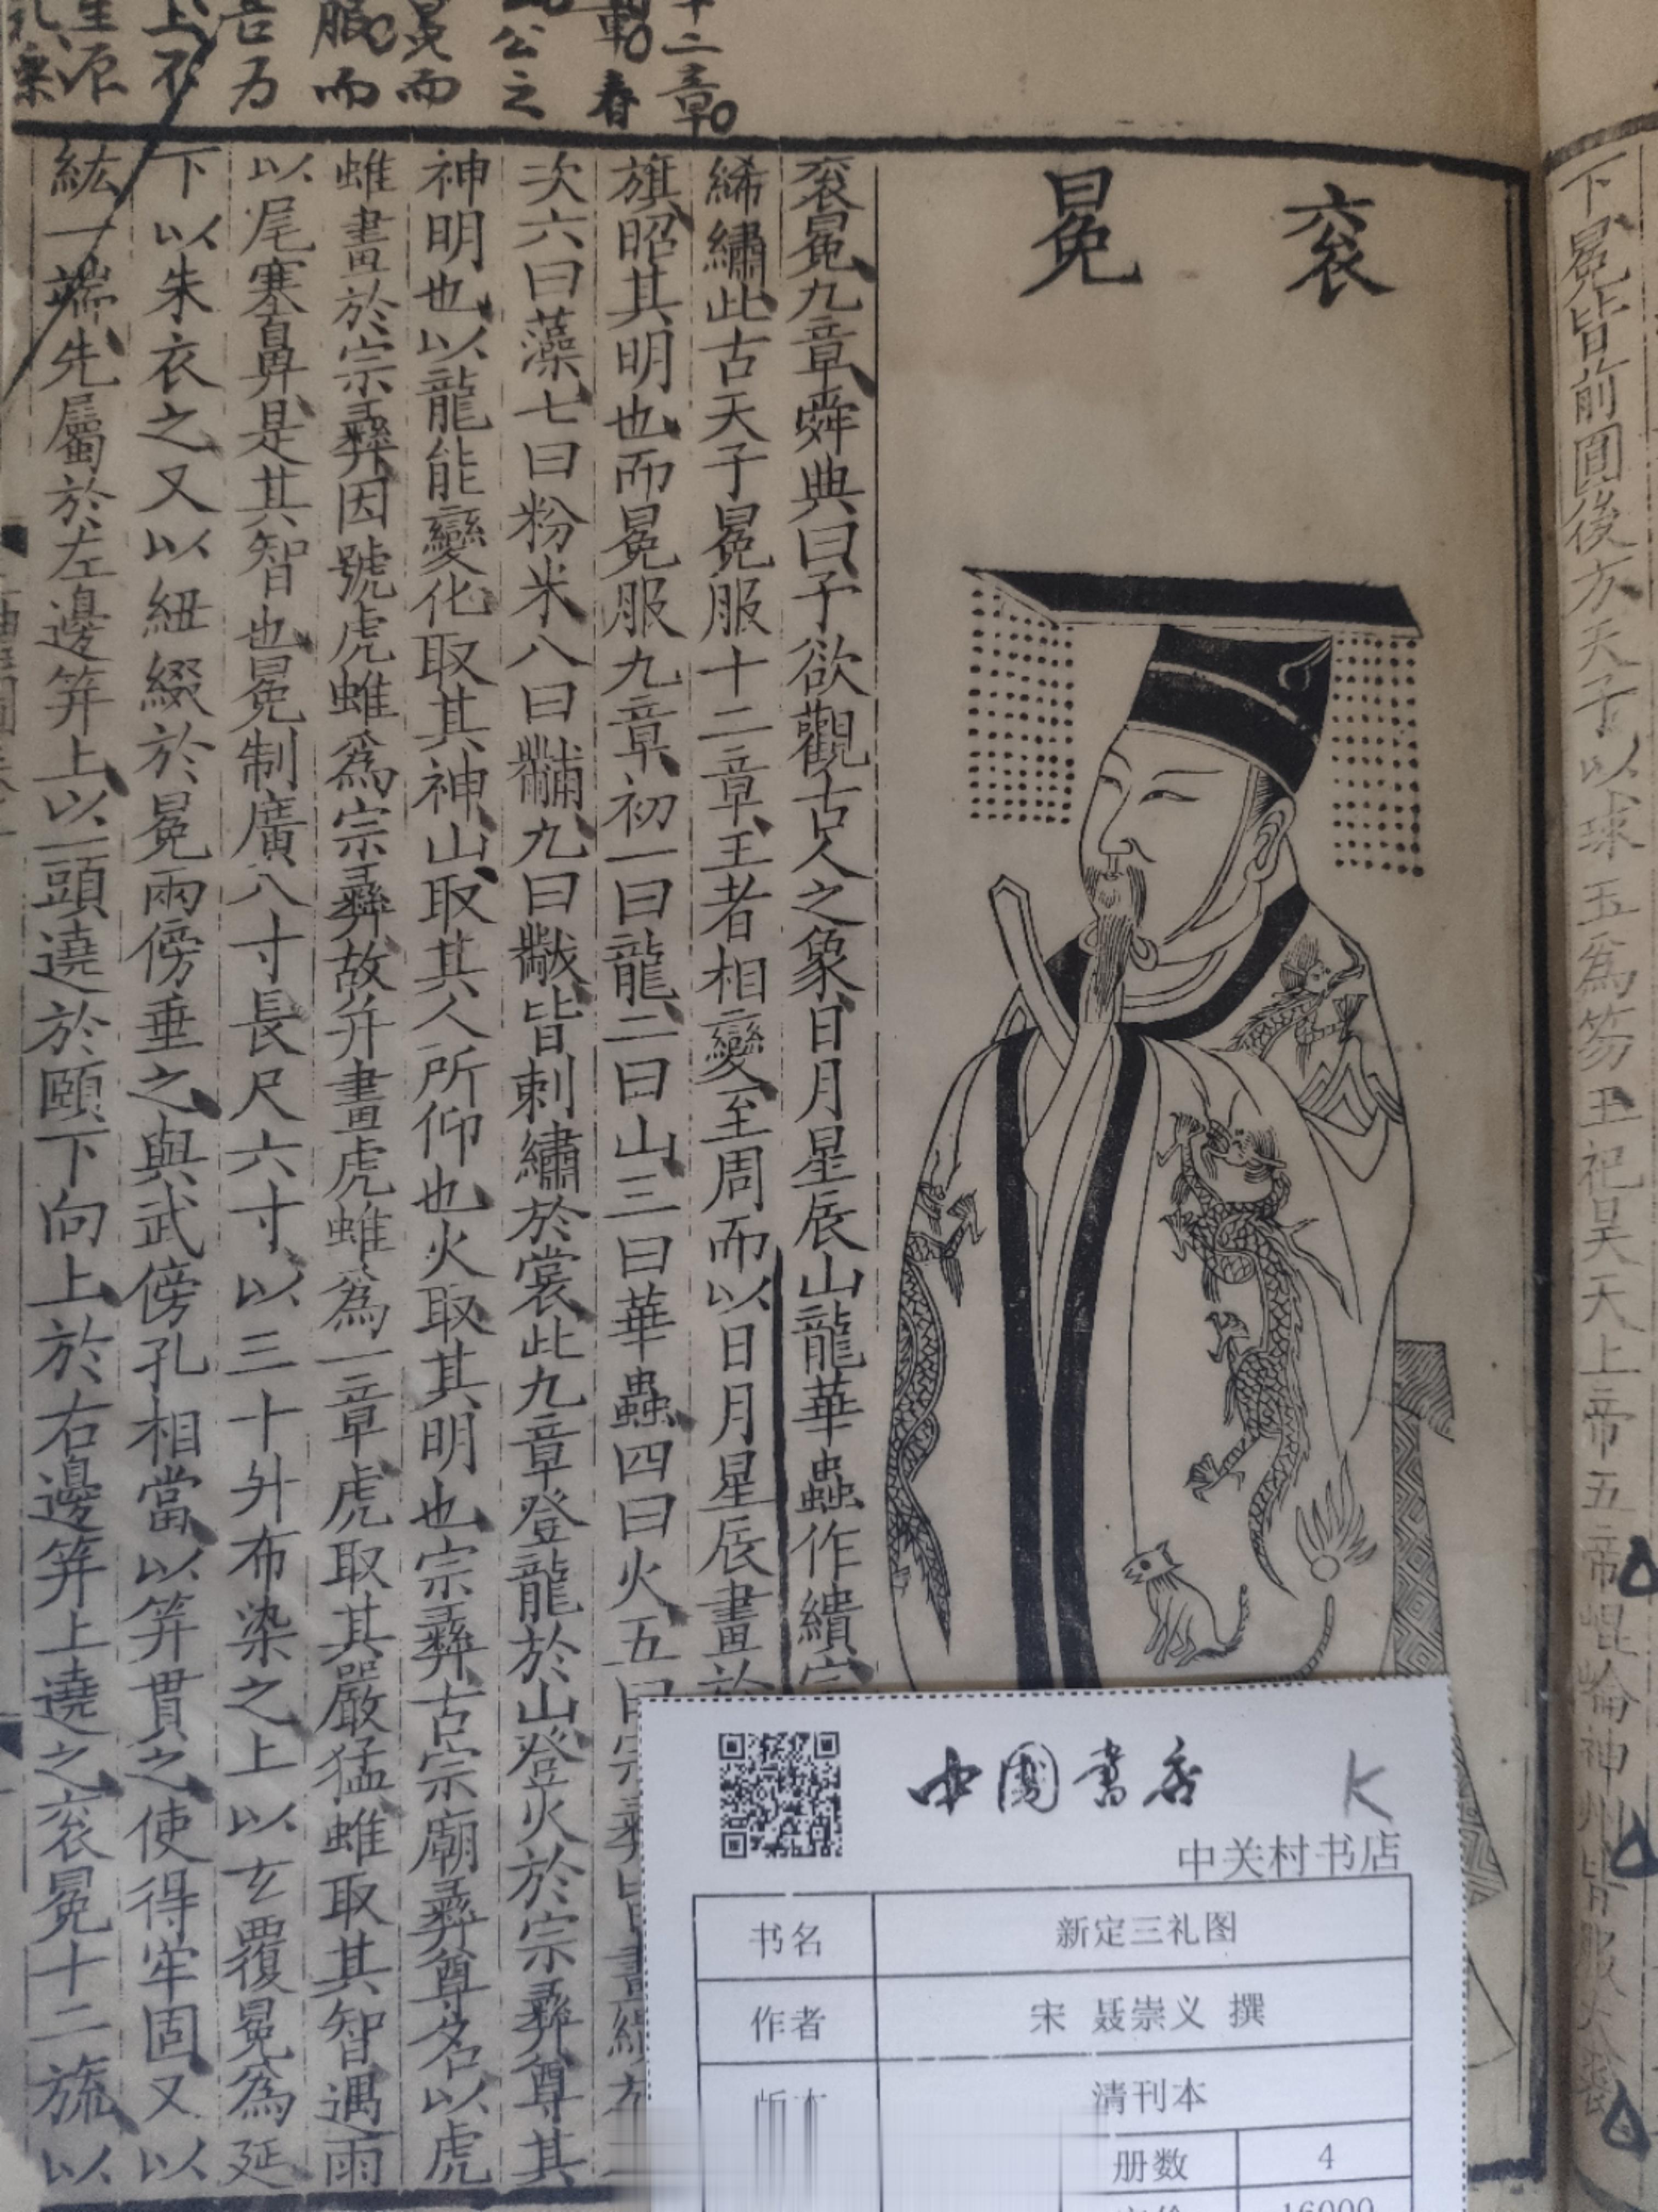 下冕皆前圓後方天子以球玉爲笏王祀昊天上帝五帝崐崘神州皆服大裘
袞冕
袞冕九章舜典曰予欲觀古人之象日月星辰山龍華蟲作繢宗
絺繡此古天子冕服十二章王者相變至周而以日月星辰畫於
旗昭其明也而冕服九章初一曰龍二曰山三曰華蟲四曰火五曰宗彝皆畫繢於
次六曰藻七曰粉米八曰黼九曰黻皆刺繡於裳此九章登龍於山登火於宗彝尊其
神明也以龍能變化取其神山取其人所仰也火取其明也宗彝古宗廟彝尊名以虎
蜼畫於宗彝因號虎蜼爲宗彝故并畫虎蜼爲一章虎取其嚴猛蜼取其智遇雨
以尾塞鼻是其智也冕制廣八寸長尺六寸以三十升布染之上以玄覆冕爲延
下以朱衣之又以紐綴於冕兩傍垂之與武傍孔相當以笄貫之使得牢固又以
紘一端先屬於左邊笄上以一頭遶於頤下向上於右邊笄上遶之袞冕十二旒以
十二章
章春
公之
冕而
服而
吾为
上不
星源
礼案
中國書店
K
中关村书店
书名 新定三礼图
作者 宋 聂崇义 撰
版本 清刊本
册数 4
16000